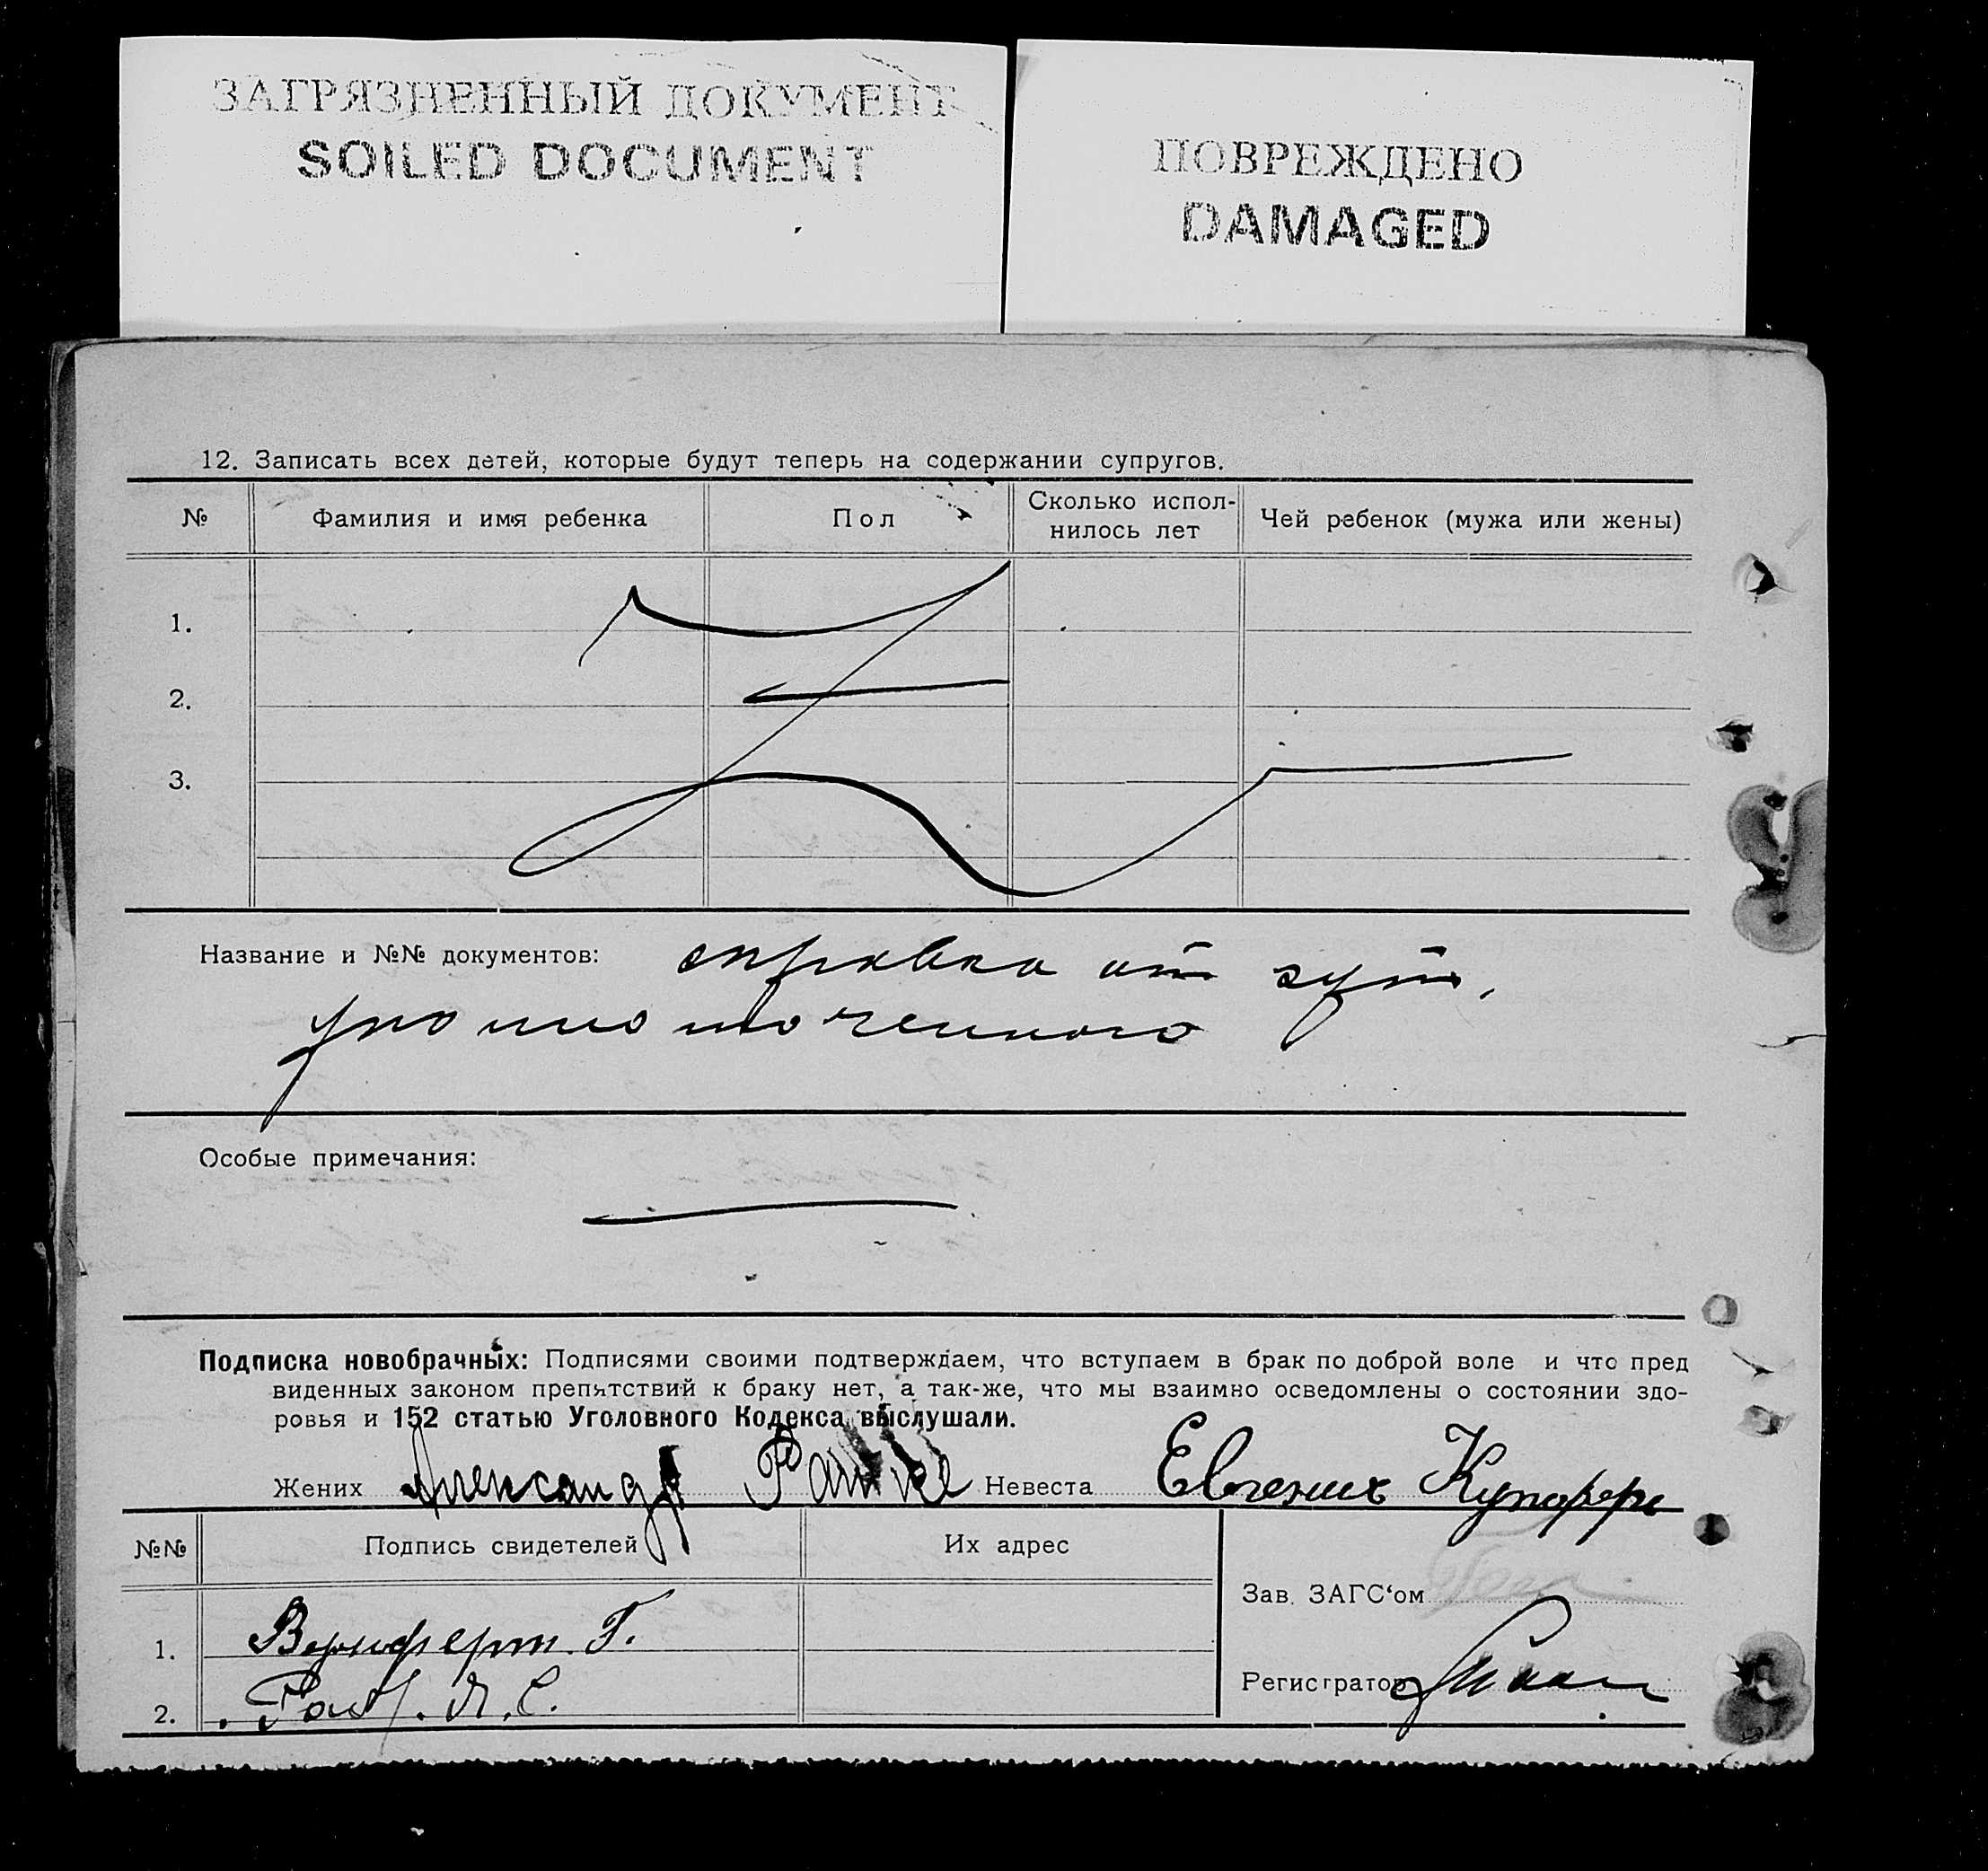 ЗАГРЯЗНЕННЫЙ ДОКУМЕНТ
SOILED DOCUMENT
ПОВРЕЖДЕНО
DAMAGED
12. Записать всех детей, которые будут теперь на содержании супругов.
№ Фамилия и имя ребенка Пол Сколько испол-нилось лет Чей ребенок (мужа или жены)
1.
2.
3.
Название и №№ документов: справка от хут.
уполномоченного
Особые примечания:
Подписка новобрачных: Подписями своими подтверждаем, что вступаем в брак по доброй воле и что пред
виденных законом препятствий к браку нет, а так-же, что мы взаимно осведомлены о состоянии здо-
ровья и 152 статью Уголовного Кодекса выслушали.
Жених Александр Невеста Евгения Купфер
№№ Подпись свидетелей Их адрес
Зав. ЗАГС'ом
1.
Регистратор
2.